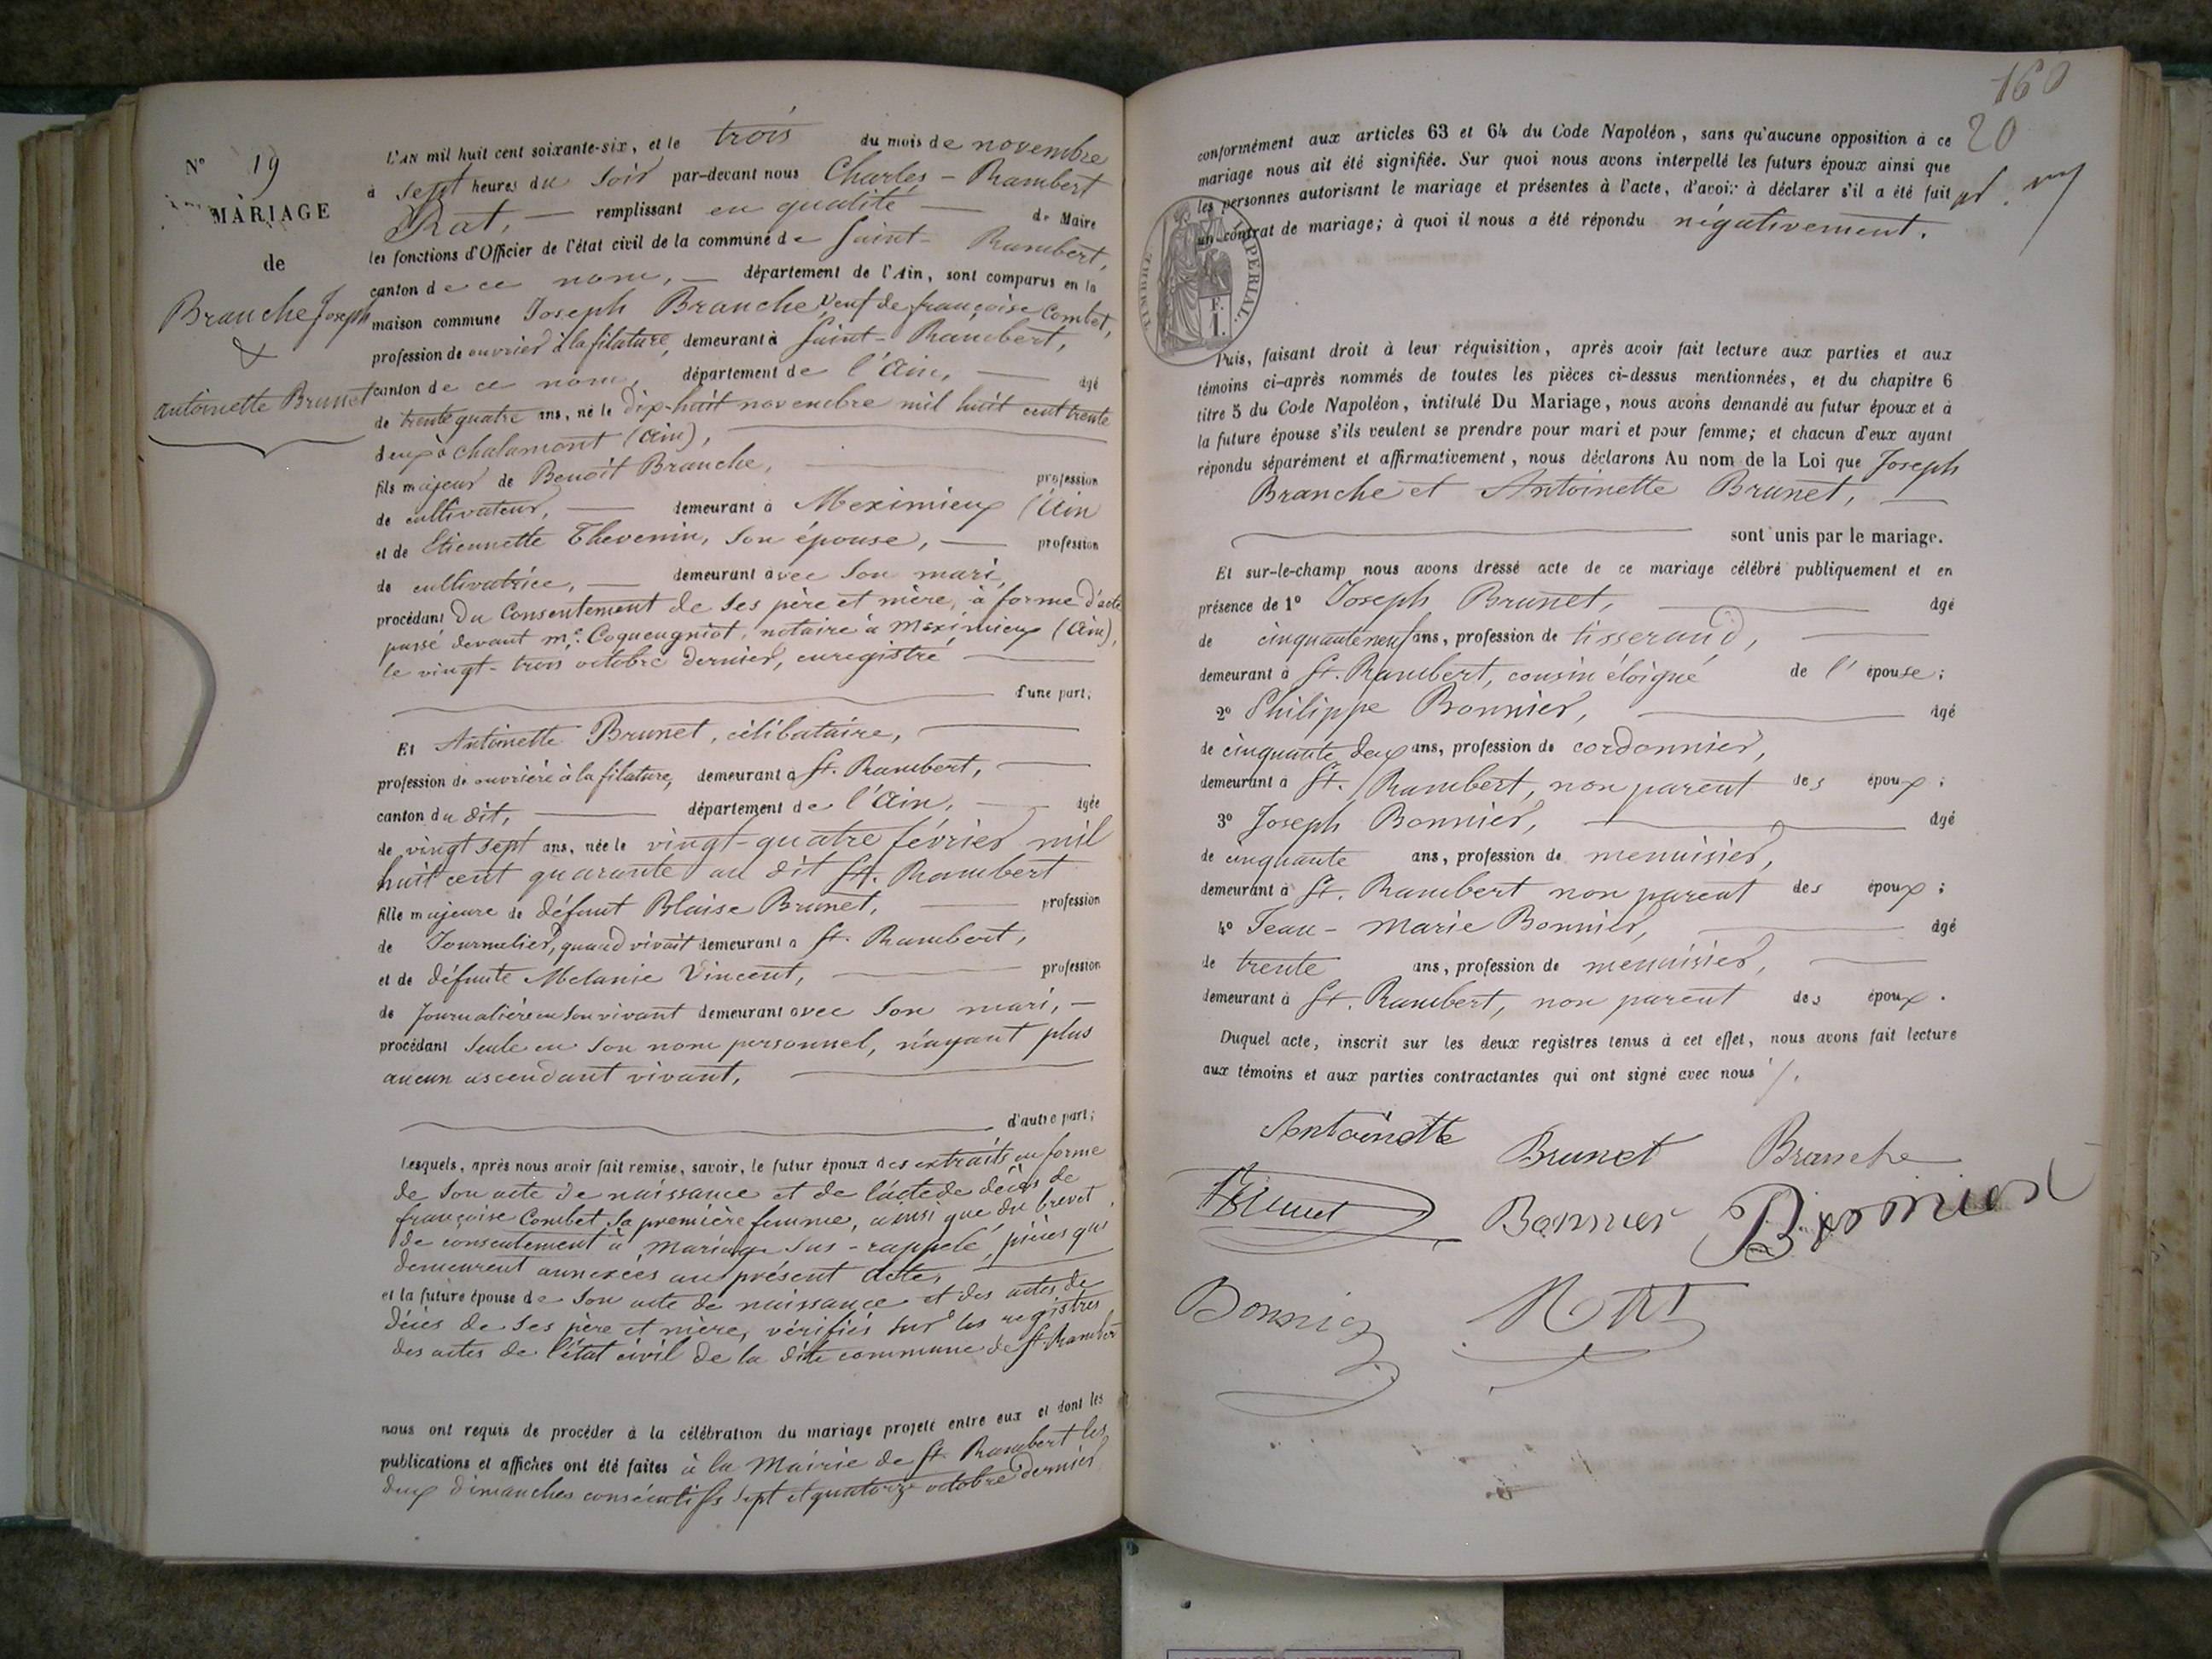 N° 19
MARIAGE
de
Branche Joseph
&
antoinette Brunet
L'AN mil huit cent soixante-six, et le trois du mois de novembre
à sept heures du soir par-devant nous Charles-Rambert
Rat, — remplissant en qualité — de Maire
les fonctions d'Officier de l'état civil de la commune de Saint-Rambert,
canton de ce nom, — département de l'Ain, sont comparus en la
maison commune Joseph Branche, veuf de françoise Combet,
profession de ouvrier à la filature, demeurant à Saint-Rambert,
canton de ce nom, département de l'Ain, — âgé
de trente quatre ans, né le dix-huit novembre mil huit cent trente
deux à chalamont (Ain), —
fils majeur de Benoît Branche, — profession
de cultivateur, — demeurant à Meximieux (Ain
et de Etiennette Thevenin, son épouse, — profession
de cultivatrice, — demeurant avec son mari,
procédant du Consentement de ses père et mère, à forme d'acte
passé devant me. Coqueugniot, notaire à Meximieux (Ain),
le vingt-trois octobre dernier, enregistré —
d'une part;
Et Antoinette Brunet, célibataire, —
profession de ouvrière à la filature, demeurant à St. Rambert, —
canton du dit, — département de l'Ain, — âgée
de vingt sept ans, née le vingt-quatre février mil
huit cent quarante au dit St. Rambert
fille majeure de défunt Blaise Brunet, — profession
de Journalier, quand vivait demeurant à St. Rambert,
et de défunte Melanie Vincent, — profession
de Journalière en son vivant demeurant avec son mari, —
procédant seule en son nom personnel, n'ayant plus
aucun ascendant vivant, —
d'autre part;
Lesquels, après nous avoir fait remise, savoir, le futur époux des extraits en forme
de son acte de naissance et de l'acte de décès de
françoise Combet sa première femme, ainsi que du brevet
de consentement à mariage sus-rappelé, pièces qui
demeurent annexées au présent acte, —
et la future épouse de son acte de naissance et des actes de
décès de ses père et mère, vérifiés sur les registres
des actes de l'état civil de la dite commune de St. Rambert
nous ont requis de procéder à la célébration du mariage projeté entre eux et dont les
publications et affiches ont été faites à la Mairie de St. Rambert les
deux dimanches consécutifs sept et quatorze octobre dernier
160
20
conformément aux articles 63 et 64 du Code Napoléon, sans qu'aucune opposition à ce
mariage nous ait été signifiée. Sur quoi nous avons interpellé les futurs époux ainsi que
les personnes autorisant le mariage et présentes à l'acte, d'avoir à déclarer s'il a été fait
un contrat de mariage; à quoi il nous a été répondu négativement.
TIMBRE IMPÉRIAL
F.
1.
Puis, faisant droit à leur réquisition, après avoir fait lecture aux parties et aux
témoins ci-après nommés de toutes les pièces ci-dessus mentionnées, et du chapitre 6
titre 5 du Code Napoléon, intitulé Du Mariage, nous avons demandé au futur époux et à
la future épouse s'ils veulent se prendre pour mari et pour femme; et chacun d'eux ayant
répondu séparément et affirmativement, nous déclarons Au nom de la Loi que Joseph
Branche et Antoinette Brunet, —
sont unis par le mariage.
Et sur-le-champ nous avons dressé acte de ce mariage célébré publiquement et en
présence de 1° Joseph Brunet, — âgé
de cinquante neuf ans, profession de tisserand, —
demeurant à St. Rambert, cousin éloigné de l'épouse;
2° Philippe Bonnier, — âgé
de cinquante deux ans, profession de cordonnier,
demeurant à St. Rambert, non parent des époux;
3° Joseph Bonnier, — âgé
de cinquante ans, profession de menuisier,
demeurant à St. Rambert non parent des époux;
4° Jean-Marie Bonnier, — âgé
de trente ans, profession de menuisier, —
demeurant à St. Rambert, non parent des époux.
Duquel acte, inscrit sur les deux registres tenus à cet effet, nous avons fait lecture
aux témoins et aux parties contractantes qui ont signé avec nous /.
Antoinette Brunet Branche
Brunet Bonnier Bonnier
Bonnier